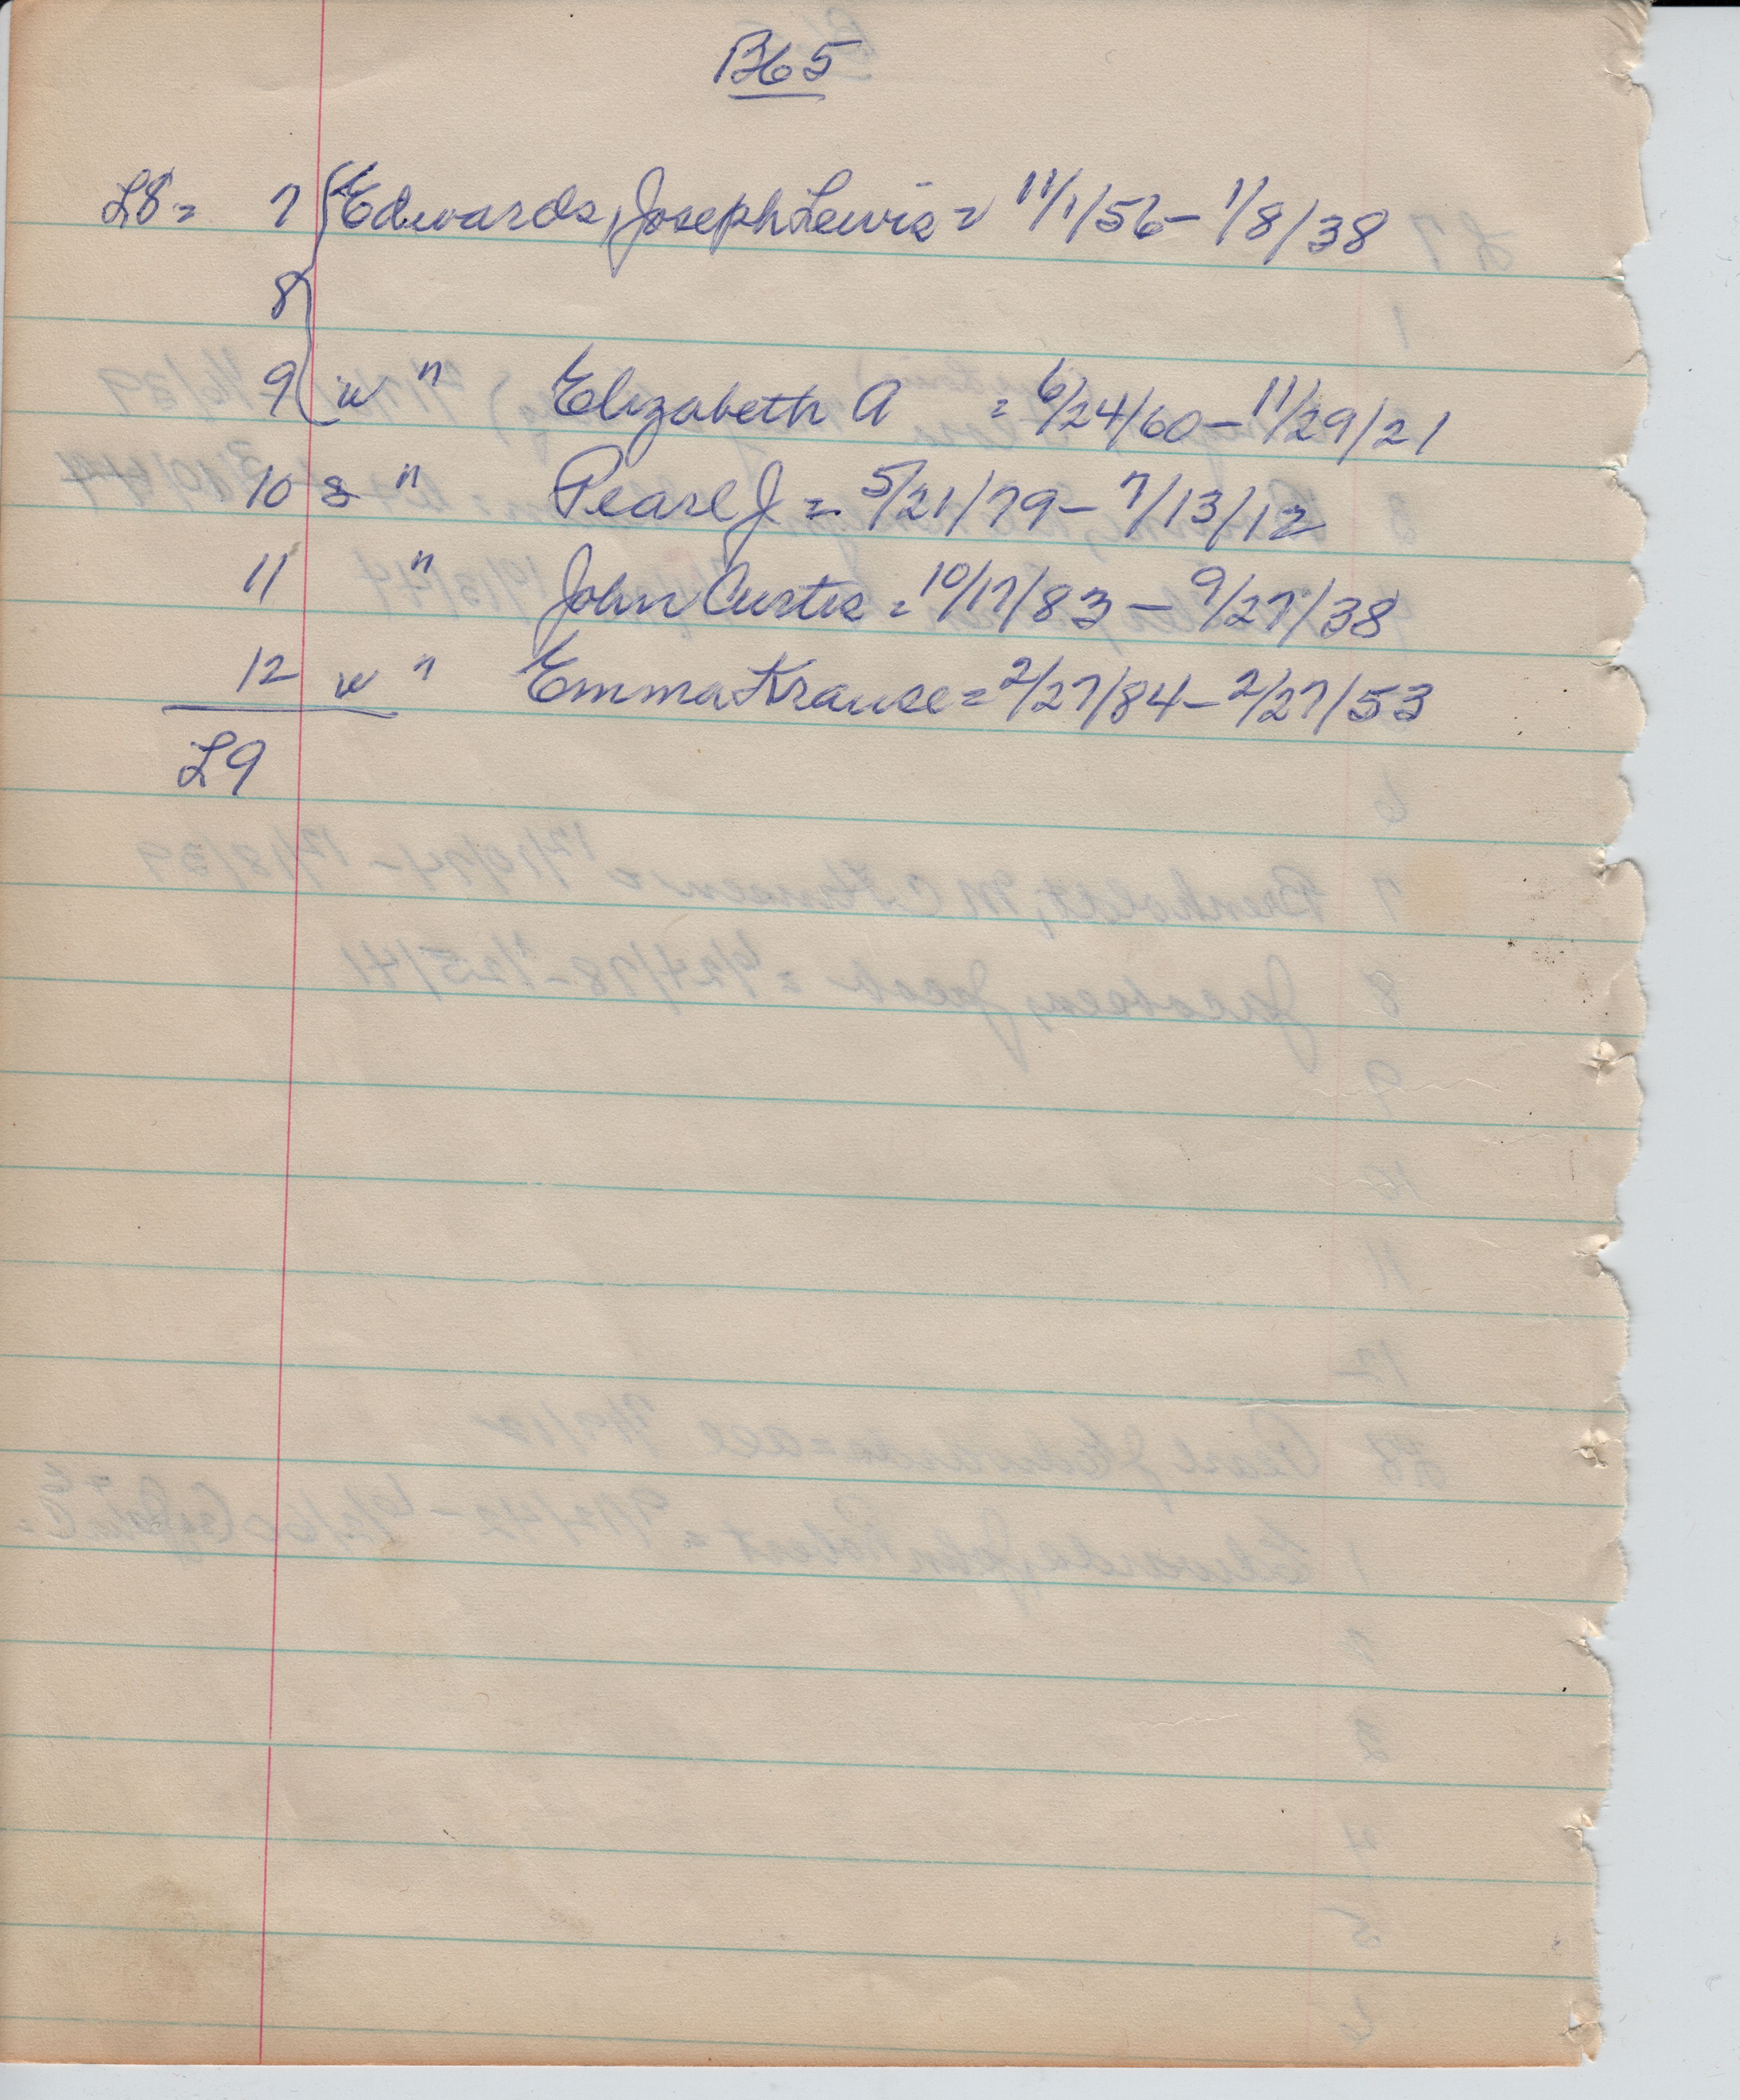 Bk 5
L8 = 7 { Edwards, Joseph Lewis = 11/1/56 - 1/8/38
8
9 w " Elizabeth A = 6/24/60 - 11/29/21
10 s " Pearl J = 5/21/79 - 7/13/12
11 " John Curtis = 10/17/83 - 9/27/38
12 w " Emma Krause = 2/27/84 - 2/27/53
L9